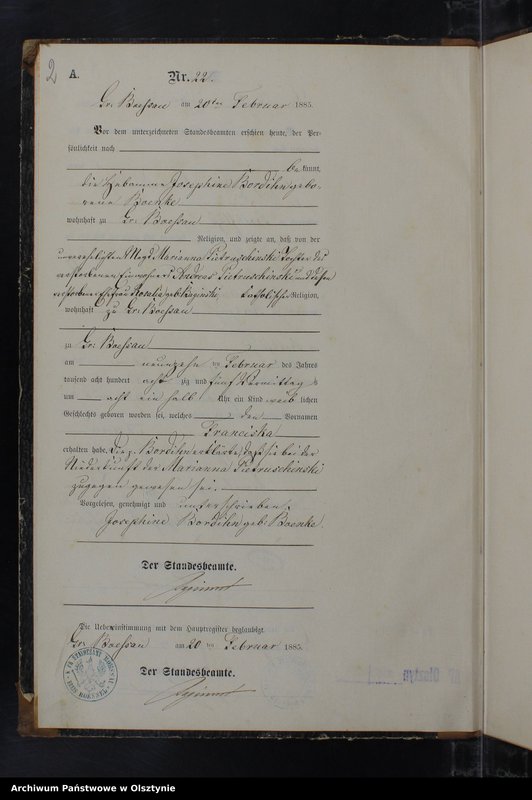 2
A.
Nr. 22.
Gr. Boessau am 20ten Februar 1885.
Vor dem unterzeichneten Standesbeamten erschien heute, der Per-
sönlichkeit nach
be kannt,
die Hebamme Josephine Bordihn gebo-
rene Boenke
wohnhaft zu Gr. Boessau
Religion, und zeigte an, daß von der
unverehelichten Magd Marianna Pietruschinski Tochter des
verstorbenen Einwohners Andreas Pietruschinski und dessen
verstorbenen Ehefrau Rosalia geb. katholischer Religion,
wohnhaft zu Gr. Boessau
zu Gr. Boessau
am neunzehn ten Februar des Jahres
tausend acht hundert acht zig und fünf Vormittags
um acht ein halb Uhr ein Kind weib lichen
Geschlechts geboren worden sei, welches den Vornamen
Franciska
erhalten habe. Die p. Bordihn erklärte, daß sie bei der
Niederkunft der Marianna Pietruschinski
zugegen gewesen sei.
Vorgelesen, genehmigt und unterschrieben.
Josephine Bordihn geb. Boenke.
Der Standesbeamte.
Die Uebereinstimmung mit dem Hauptregister beglaubigt.
Gr. Boessau am 20 ten Februar 1885.
Der Standesbeamte.
AP Olsztyn
Archiwum Państwowe w Olsztynie